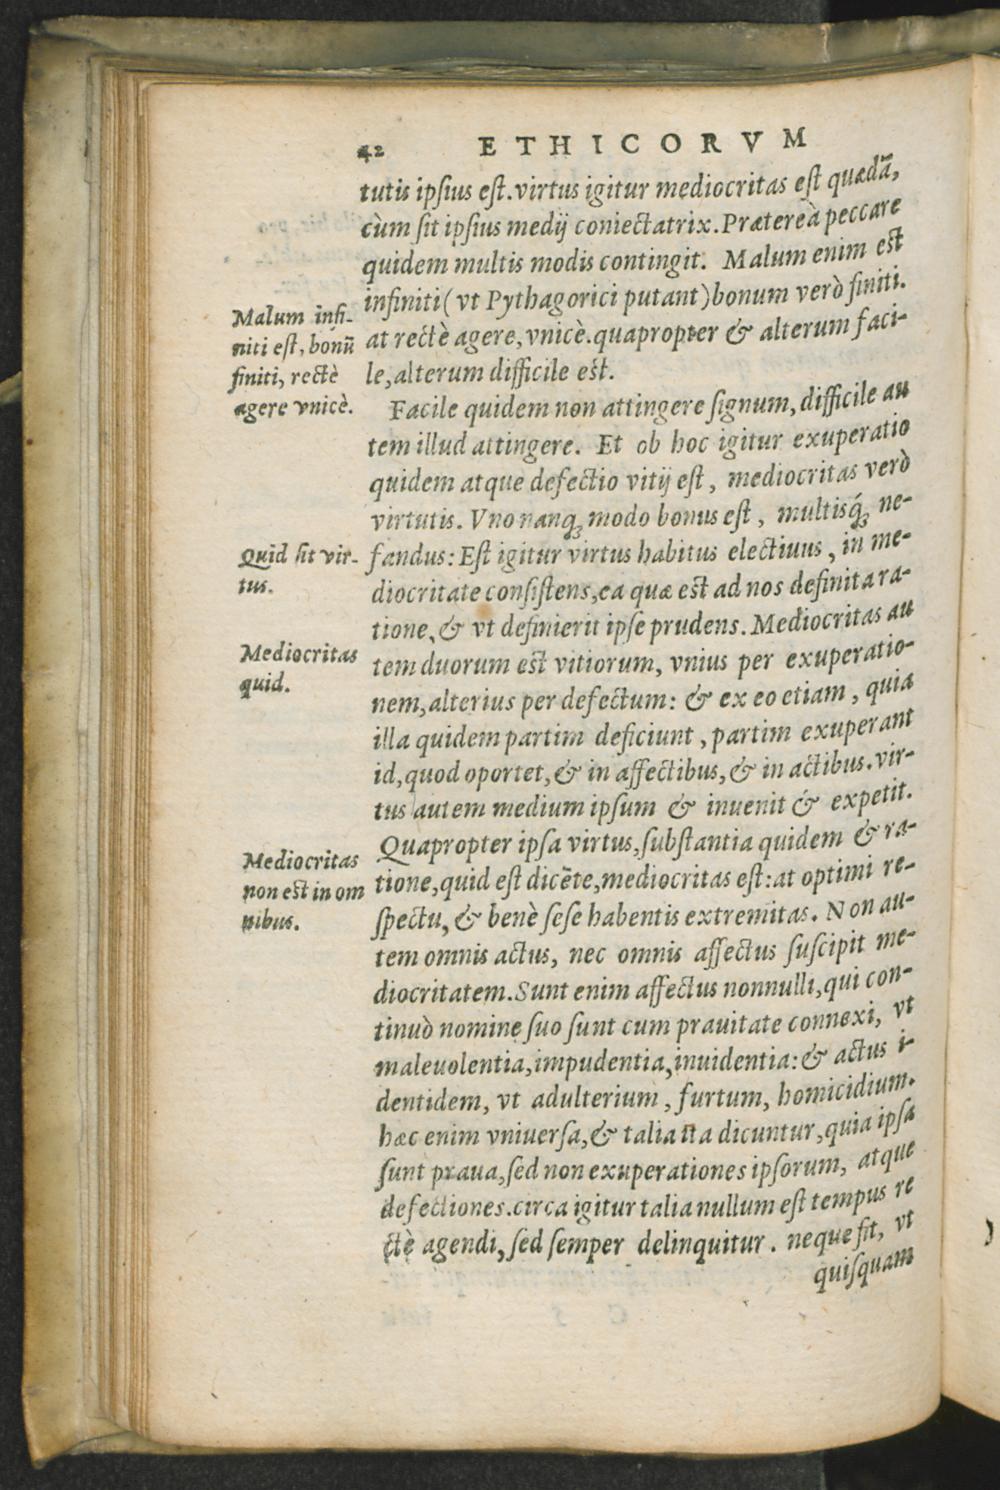 42 ETHICORVM
tutis ipsius est. virtus igitur mediocritas est quædã,
cùm sit ipsius medij coniectatrix. Prætereà peccare
quidem multis modis contingit. Malum enim est
infiniti (vt Pythagorici putant) bonum verò finiti.
at rectè agere, vnicè. quapropter & alterum faci-
le, alterum difficile est.
Malum infi-
niti est, bonũ
finiti, rectè
agere vnicè.
Facile quidem non attingere signum, difficile au
tem illud attingere. Et ob hoc igitur exuperatio
quidem atque defectio vitij est, mediocritas verò
virtutis. Vno nanq; modo bonus est, multisq́; ne-
fandus: Est igitur virtus habitus electiuus, in me-
diocritate consistens, ea quæ est ad nos definita ra-
tione, & vt definierit ipse prudens. Mediocritas au
tem duorum est vitiorum, vnius per exuperatio-
nem, alterius per defectum: & ex eo etiam, quia
illa quidem partim deficiunt, partim exuperant
id, quod oportet, & in affectibus, & in actibus. vir-
tus autem medium ipsum & inuenit & expetit.
Quid sit vir-
tus.
Mediocritas
quid.
Quapropter ipsa virtus, substantia quidem & ra-
tione, quid est dicẽte, mediocritas est: at optimi re-
spectu, & benè sese habentis extremitas. Non au-
tem omnis actus, nec omnis affectus suscipit me-
diocritatem. Sunt enim affectus nonnulli, qui con-
tinuò nomine suo sunt cum prauitate connexi, vt
maleuolentia, impudentia, inuidentia: & actus i-
dentidem, vt adulterium, furtum, homicidium.
hæc enim vniuersa, & talia ita dicuntur, quia ipsa
sunt praua, sed non exuperationes ipsorum, atque
defectiones. circa igitur talia nullum est tempus re
ctè agendi, sed semper delinquitur. neque fit, vt
Mediocritas
non est in om
nibus.
quisquam